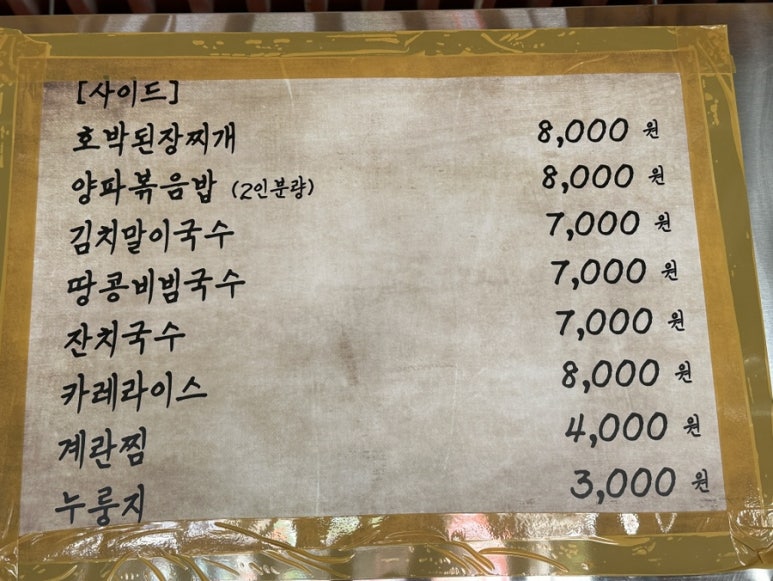 [사이드]
호박된장찌개 8,000 원
양파볶음밥 (2인분량) 8,000 원
김치말이국수 7,000 원
땅콩비빔국수 7,000 원
잔치국수 7,000 원
카레라이스 8,000 원
계란찜 4,000 원
누룽지 3,000 원